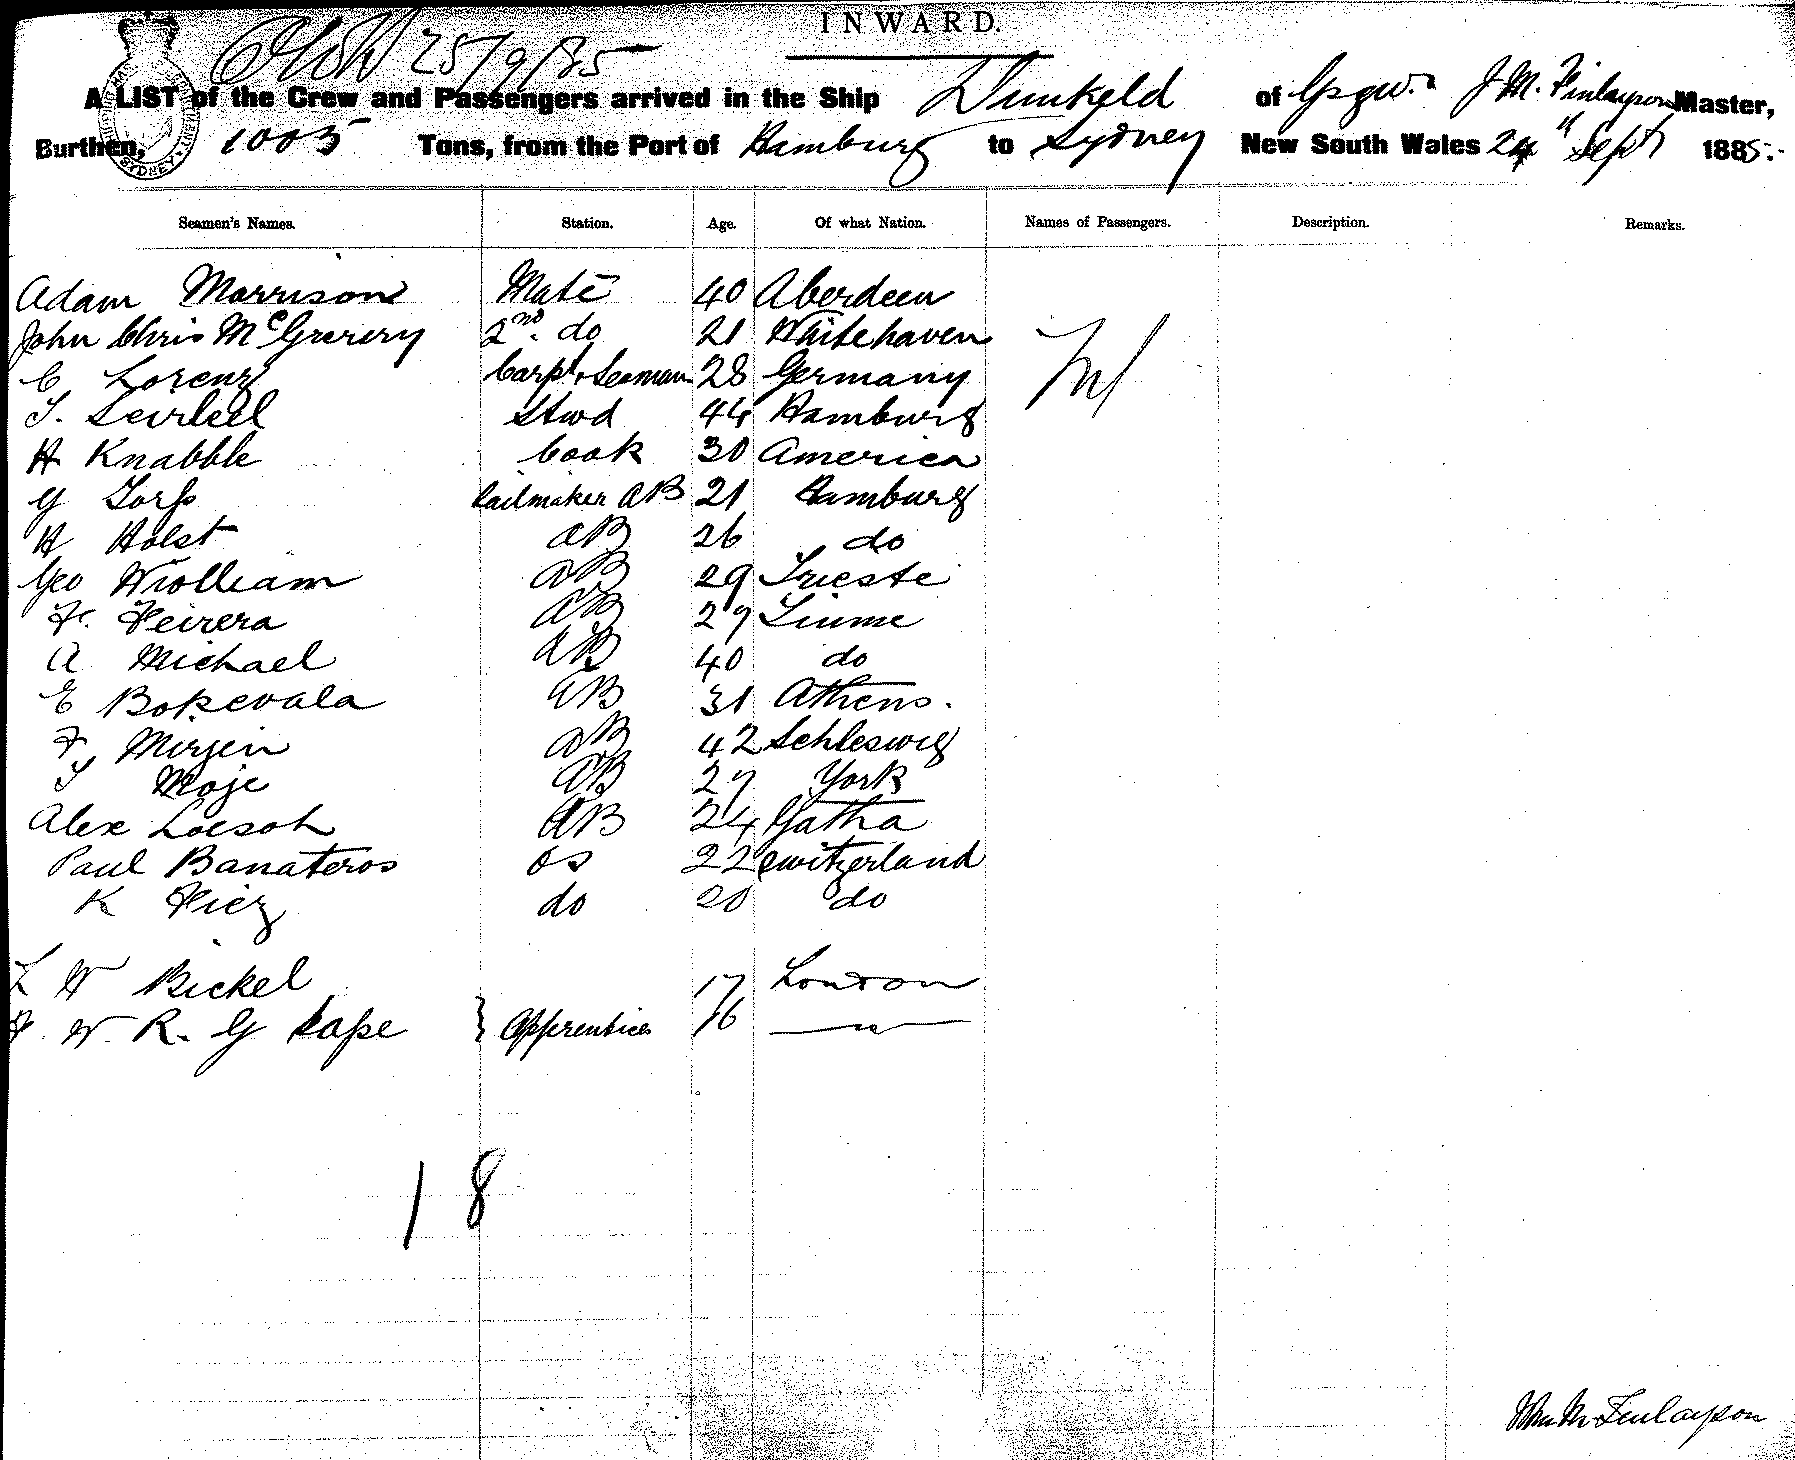 INWARD.
25/9/85
A LIST of the Crew and Passengers arrived in the Ship Dunkeld of Gsgw. J M. Finlayson Master,
Burthen, 1005 Tons, from the Port of Hamburg to Sydney New South Wales 24th Sept 1885.
Seamen's Names. Station. Age. Of what Nation. Names of Passengers. Description. Remarks.
Adam Morrison Mate 40 Aberdeen
John Chris McGrerery 2nd. do 21 Whitehaven Nil
C Lorenz Carpt & Seaman 28 Germany
Stwd 44 Hamburg
H Knabble Cook 30 America
G Torp Sailmaker AB 21 Hamburg
H Holst AB 26 do
Geo Wiolliam AB 29 Trieste
F. Feirera AB 27 Fiume
A Michael AB 40 do
E Bokevala AB 31 Athens.
F Mirjen AB 42 Schleswig
Moje AB 27 York
Alex Loesch AB 24 Gatha
Paul Banateros OS 22 Switzerland
K Fiez do 20 do
L W Bickel 17 London
F. W. R. G Cape } Apprentices 16 — " —
18
Jno M. Finlayson